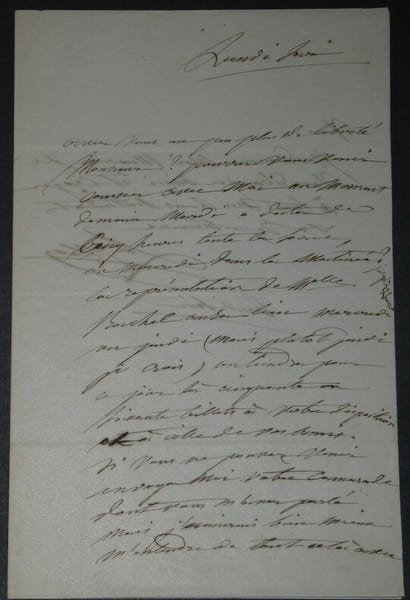 Lundi soir
avez vous un peu plus de liberté
Monsieur ? pourrez vous venir
causer avec moi un moment
demain Mardi à dater de
Cinq heures toute la soirée,
ou Mercredi dans la Matinée ?
la représentation de Melle
Rachel aura lieu mercredi
ou jeudi (mais plutot jeudi
je crois)
ce jour là cinquante ou
soixante billets à votre disposition
et à celle de vos amis.
Si vous ne pouvez venir
envoyez moi votre Camarade
dont vous m'avez parlé
Mais j'aimerais bien mieux
m'entendre de tout cela avec